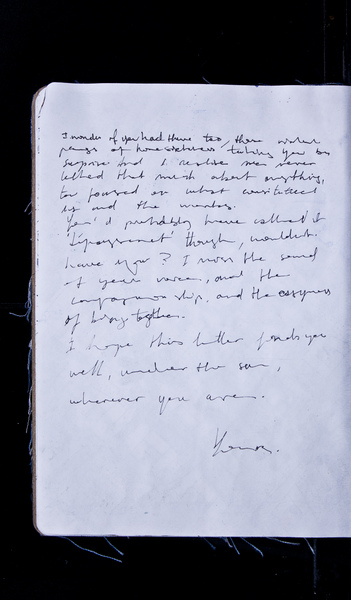 I wonder if you had these too, these violent
pangs of homesickness taking you by
surprise and I realise we never
talked that much about anything,
too focused on what constituted
us and the
You'd probably have called it
though, wouldn't
have you? I miss the sound
of your voice, and the
companionship, and the easyness
of being together.
I hope this letter finds you
well, under the sun,
wherever you are.
Yours.